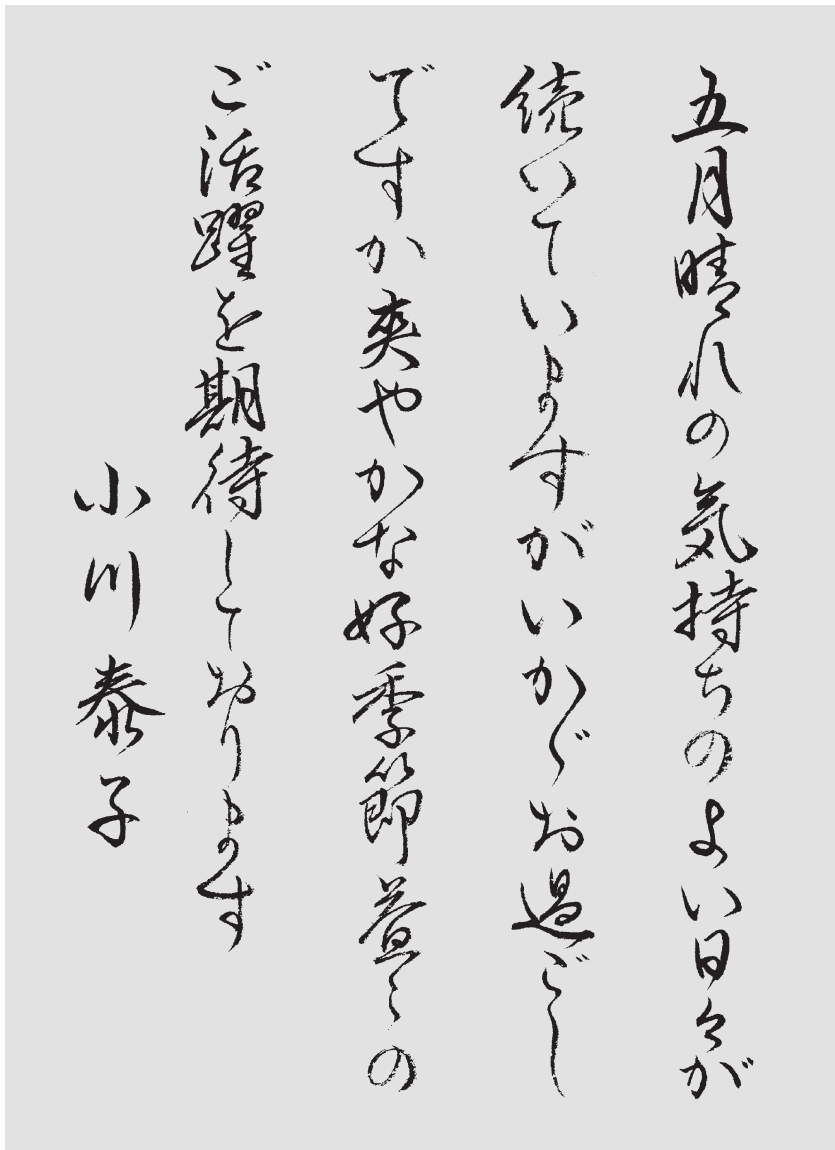 五月晴れの気持ちのよい日々が
続いていますがいかゞお過ごし
ですか爽やかな好季節益々の
ご活躍を期待しております
小川泰子